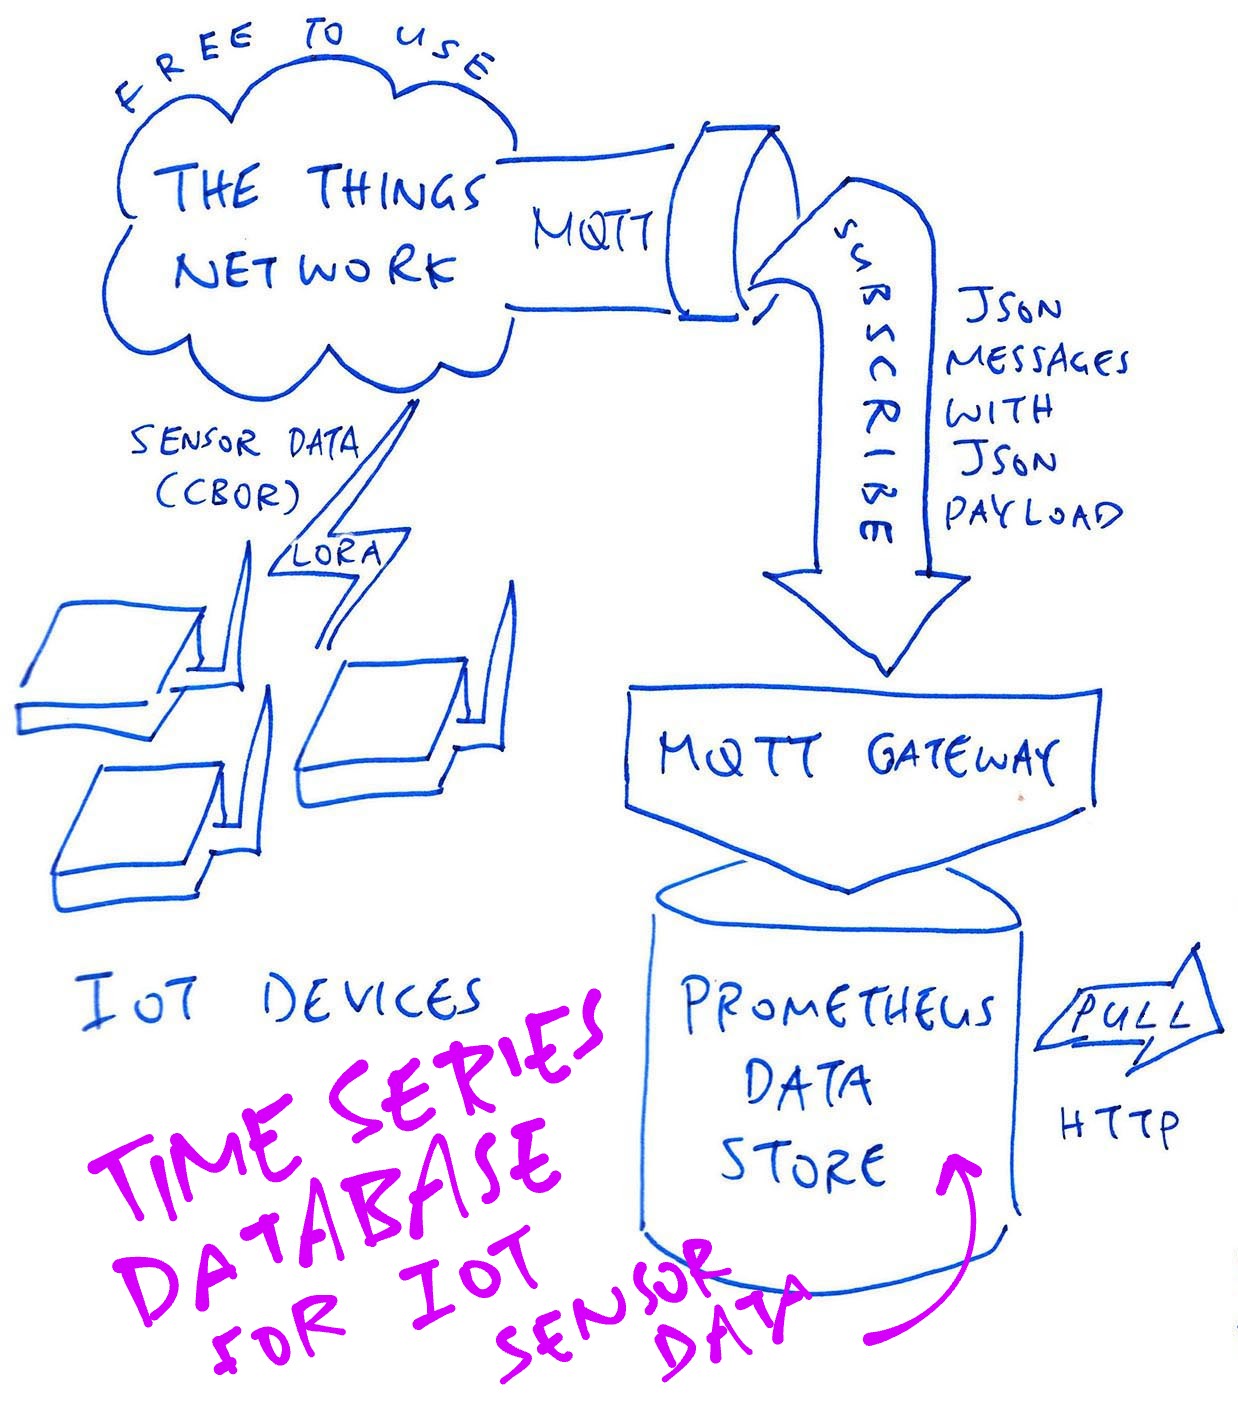 FREE TO USE
THE THINGS
NETWORK
MQTT
SUBSCRIBE
JSON
MESSAGES
WITH
JSON
PAYLOAD
SENSOR DATA
(CBOR)
LORA
MQTT GATEWAY
IOT DEVICES
PROMETHEUS
DATA
STORE
PULL
HTTP
TIME SERIES
DATABASE
FOR IOT
SENSOR
DATA